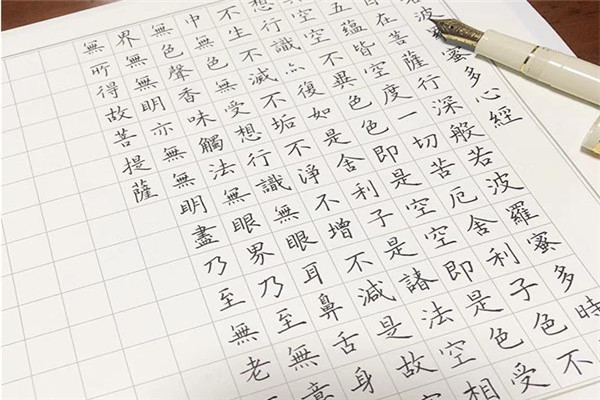 若波羅蜜多心經
自在菩薩行深般若波羅蜜多時
五蘊皆空度一切苦厄舍利子色不
空不異色色即是空空即是色受
想行識亦復如是舍利子是諸法空相
不生不滅不垢不淨不增不減是故空
中無色無受想行識無眼耳鼻舌身
無色聲香味觸法無眼界乃至無意
界無無明亦無無明盡乃至無老
無所得故菩提薩